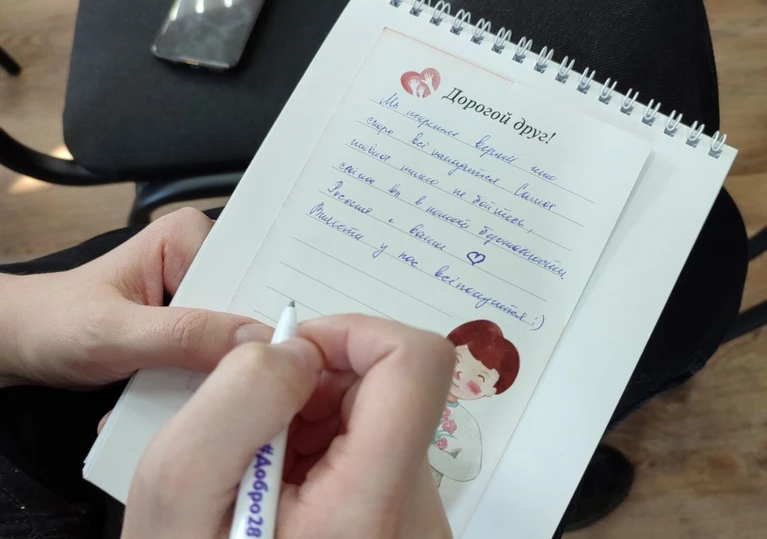 Дорогой друг!
Мы искренне верим что
скоро всё наладится Самое
главное ничего не бойтесь,
сейчас вы в полной безопасности.
Россия с вами ♡
Вместе у нас всё получится :)
#Добро28